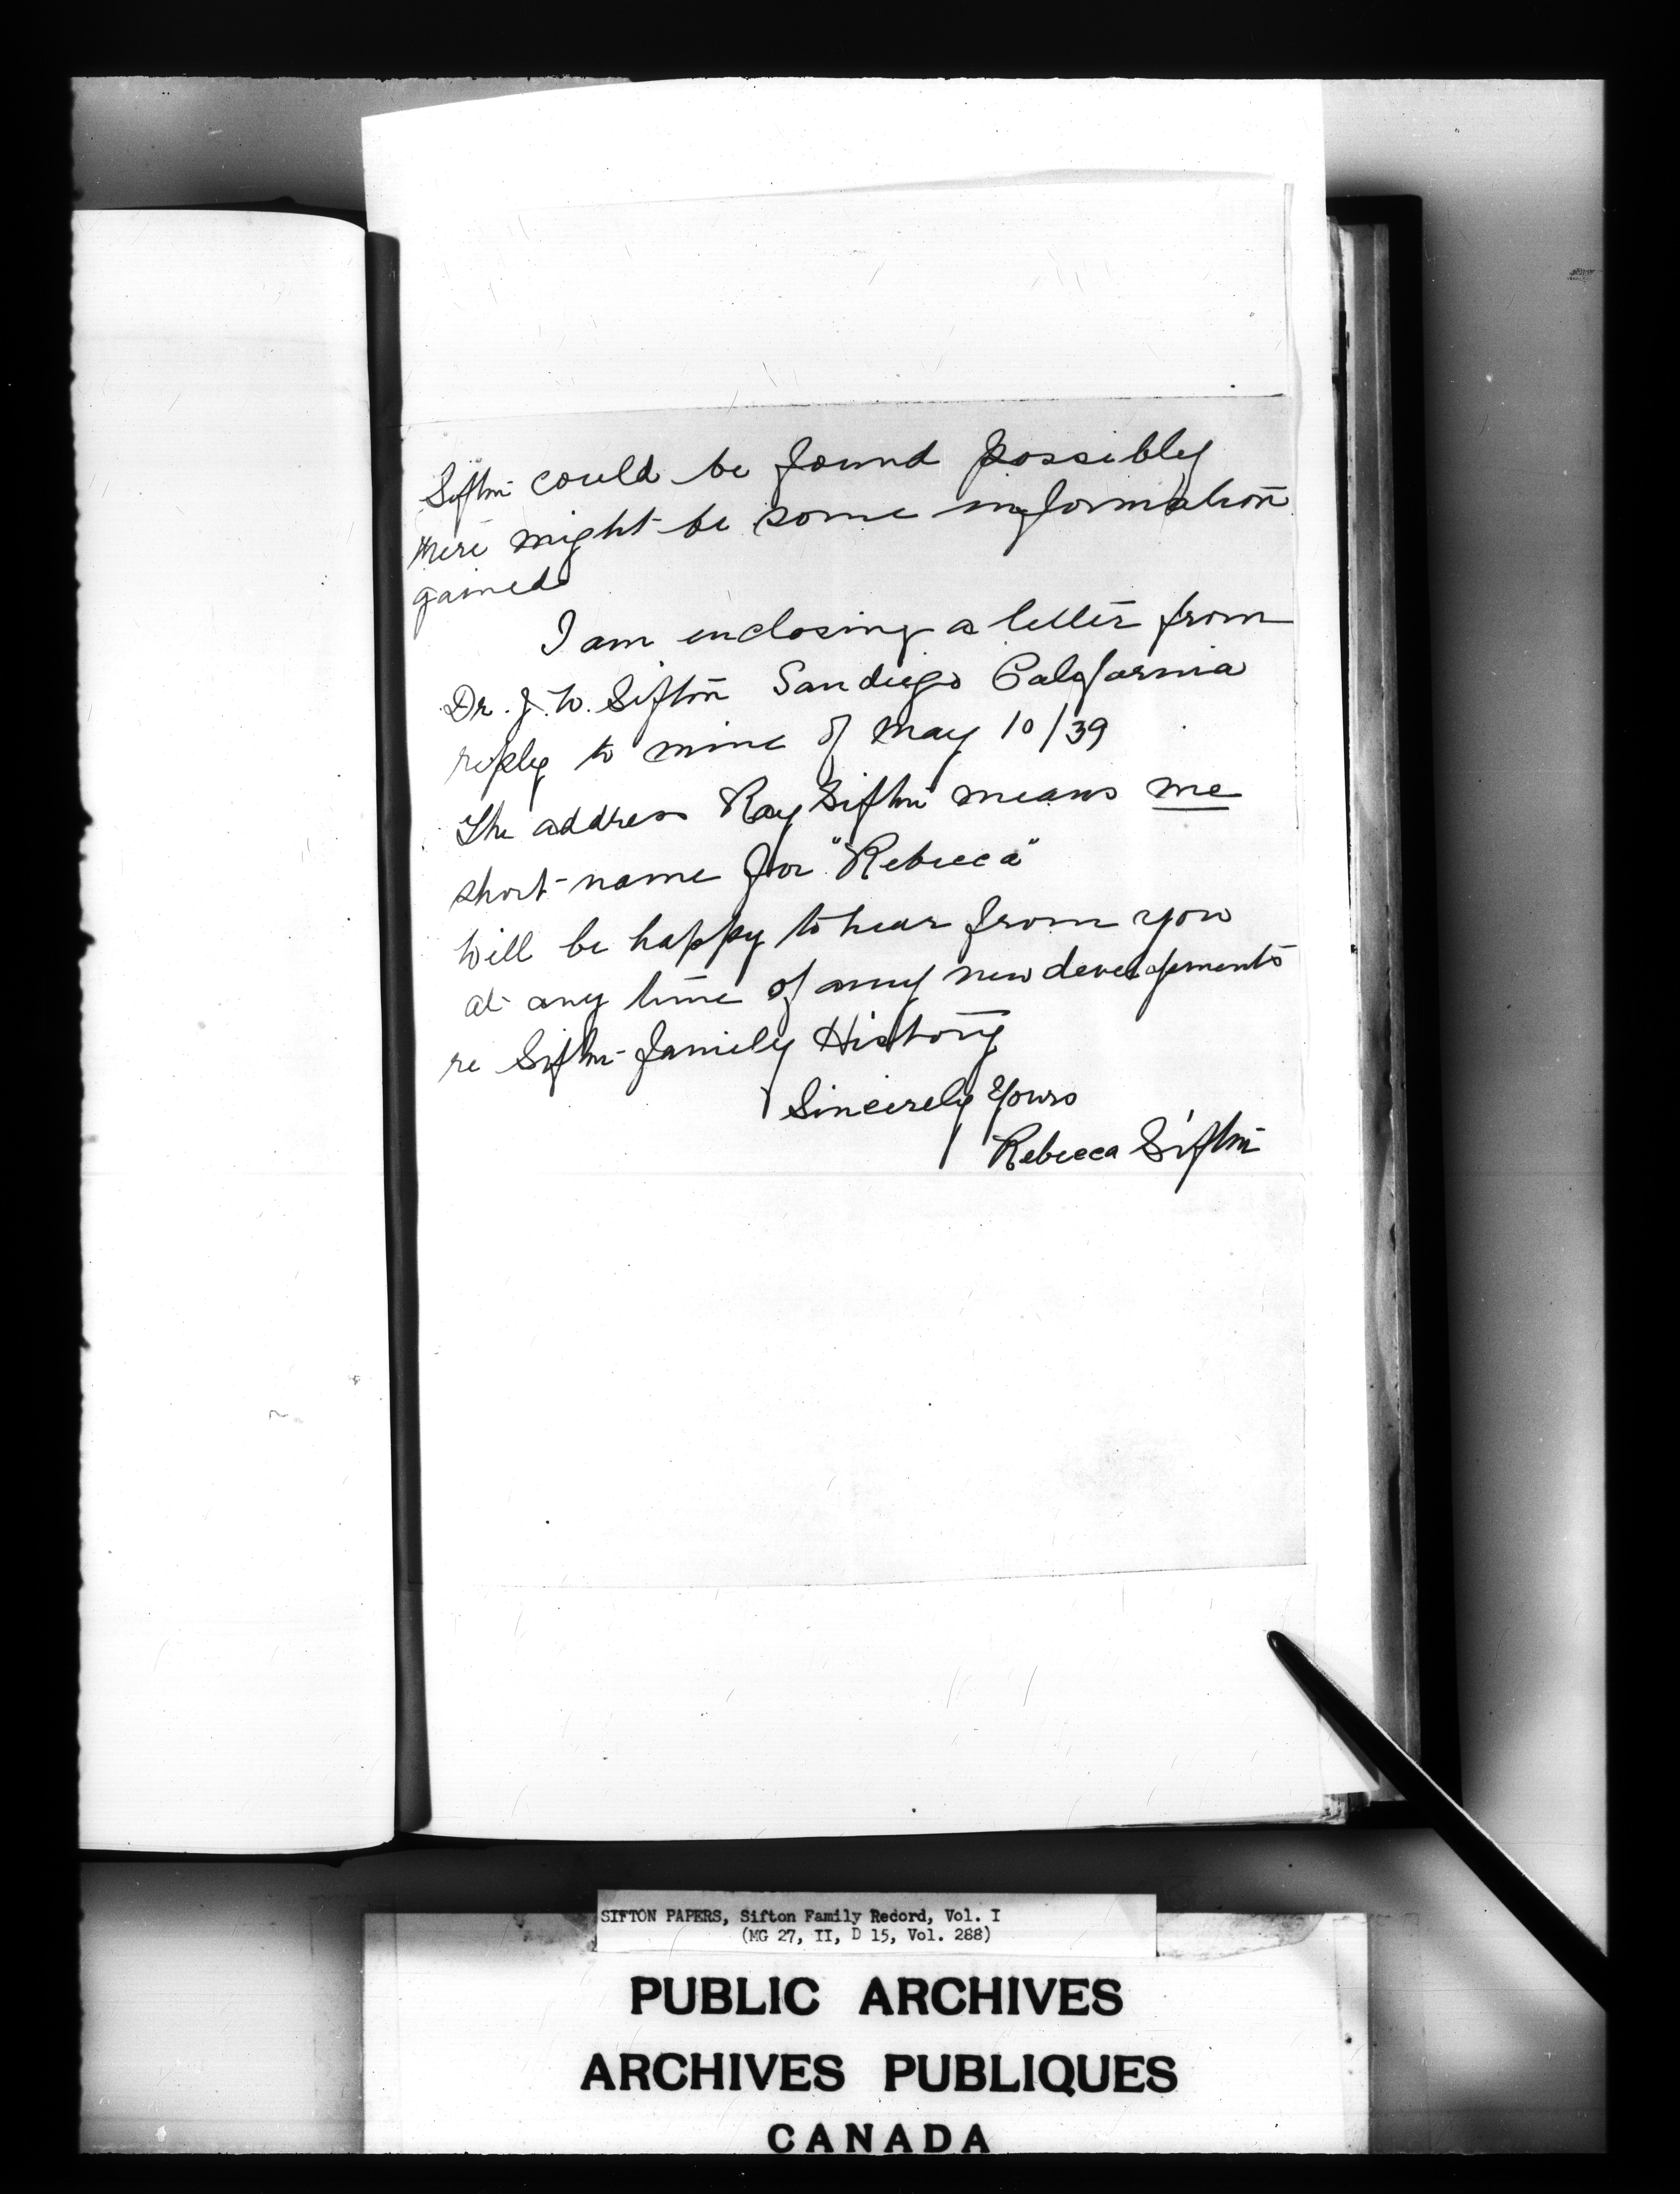 Sifton could be found possibly
there might be some information
gained
I am enclosing a letter from
Dr. J. W. Sifton Sandiego California
reply to mine of May 10/39
The address Ray Sifton means me
short name for "Rebecca"
Will be happy to hear from you
at any time of any new developments
re Sifton family History
Sincerely Yours
Rebecca Sifton
SIFTON PAPERS, Sifton Family Record, Vol. I
(MG 27, II, D 15, Vol. 288)
PUBLIC ARCHIVES
ARCHIVES PUBLIQUES
CANADA